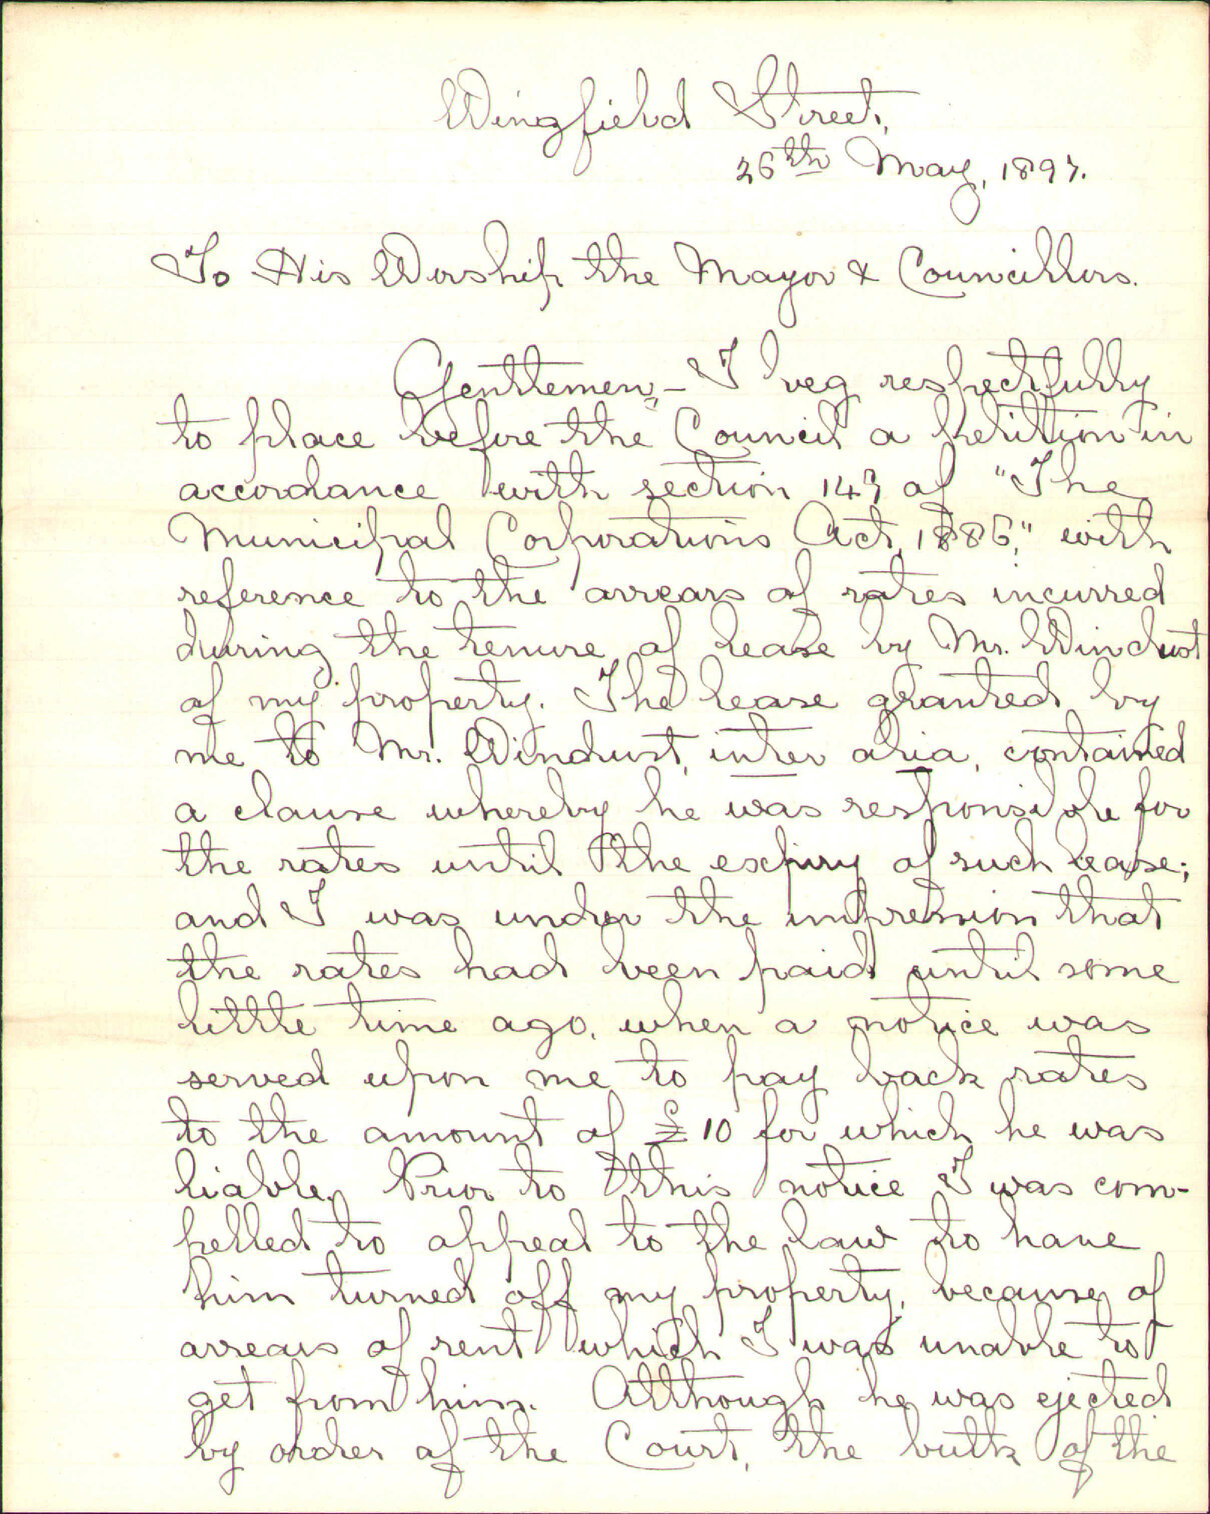 Wingfield Street,
26th May, 1897.
To His Worship the Mayor & Councillors.
Gentlemen,- I beg respectfully
to place before the Council a petition in
accordance with section 147 of "The
Municipal Corporations Act, 1886," with
reference to the arrears of rates incurred
during the tenure of lease by Mr. Windust
of my property. The lease granted by
me to Mr. Windust, inter alia, contained
a clause whereby he was responsible for
the rates until the expiry of such lease;
and I was under the impression that
the rates had been paid until some
little time ago, when a notice was
served upon me to pay back rates
to the amount of £10 for which he was
liable. Prior to this notice I was com-
pelled to appeal to the law to have
him turned off my property, because of
arrears of rent which I was unable to
get from him. Although he was ejected
by order of the Court, the bulk of the